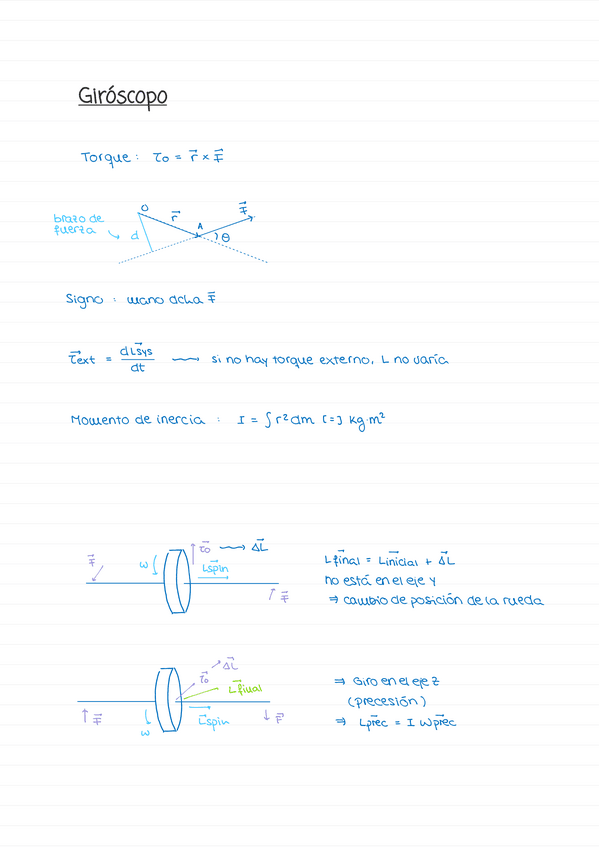 Giróscopo
Torque : τo = r⃗ × F⃗
O
r⃗
A
F⃗
θ
brazo de
fuerza
d
Signo : mano dcha F⃗
τ⃗ext = dL⃗sys / dt ⟶ si no hay torque externo, L no varía
Momento de inercia : I = ∫r²dm [=] kg·m²
F⃗
ω
τ⃗o ⟶ ΔL⃗
L⃗spin
F⃗
L⃗final = L⃗inicial + ΔL⃗
no está en el eje y
⇒ cambio de posición de la rueda
ΔL⃗
τ⃗o
L⃗final
F⃗
ω
L⃗spin
F⃗
⇒ Giro en el eje z
(precesión)
⇒ L⃗prec = I ω⃗prec